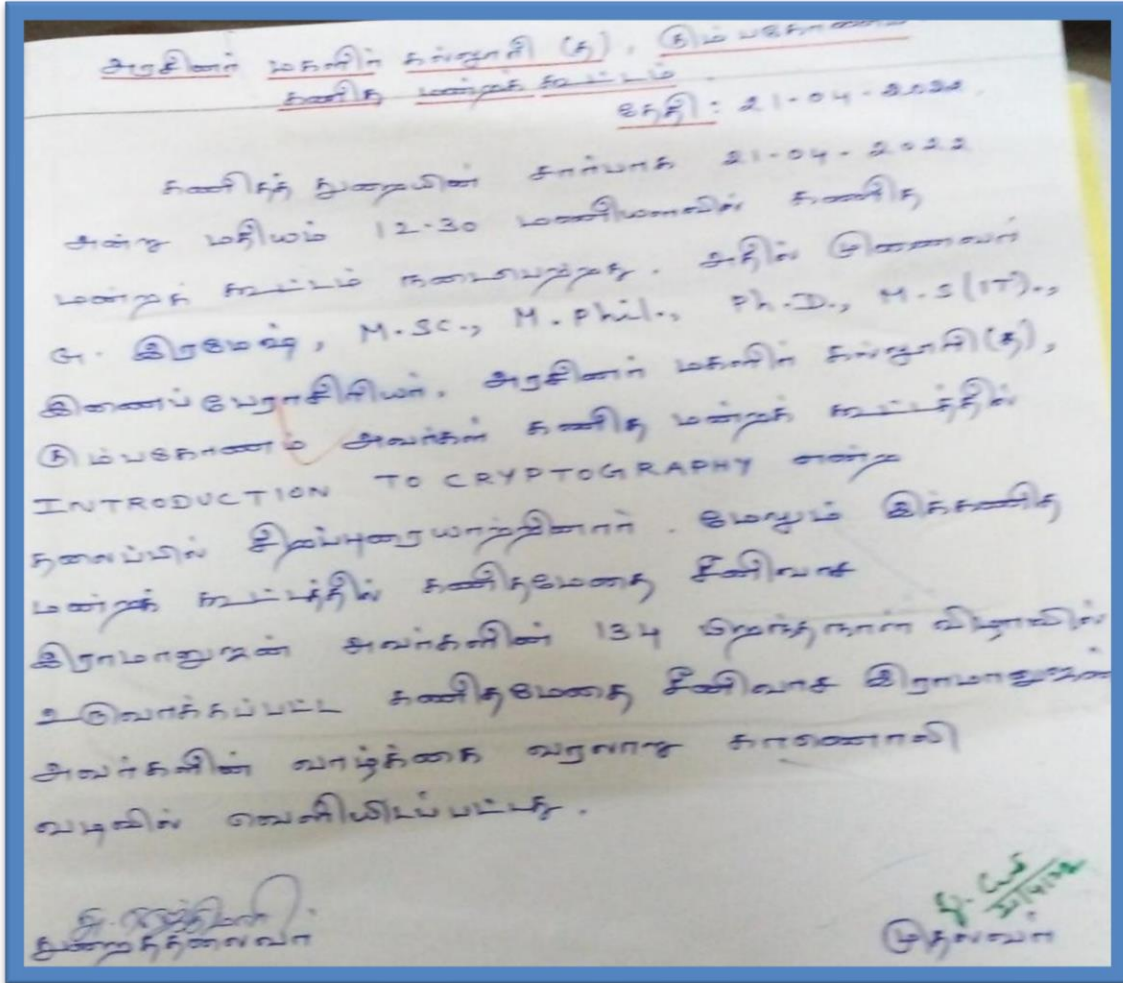 அரசினர் மகளிர் கல்லூரி (த), கும்பகோணம்
கணித மன்றக் கூட்டம்.
தேதி: 21-04-2022.
கணிதத் துறையின் சார்பாக 21-04-2022
அன்று மதியம் 12.30 மணியளவில் கணித
மன்றக் கூட்டம் நடைபெற்றது. அதில் முனைவர்
G. இரமேஷ், M.SC., M.Phil., Ph.D., M.S(IT).,
இணைப்பேராசிரியர், அரசினர் மகளிர் கல்லூரி(த),
கும்பகோணம் அவர்கள் கணித மன்றக் கூட்டத்தில்
INTRODUCTION TO CRYPTOGRAPHY என்ற
தலைப்பில் சிறப்புரையாற்றினார். மேலும் இக்கணித
மன்றக் கூட்டத்தில் கணிதமேதை சீனிவாச
இராமானுஜன் அவர்களின் 134 பிறந்தநாள் விழாவில்
உருவாக்கப்பட்ட கணிதமேதை சீனிவாச இராமானுஜன்
அவர்களின் வாழ்க்கை வரலாறு காணொலி
வடிவில் வெளியிடப்பட்டது.
துறைத்தலைவர்
முதல்வர்